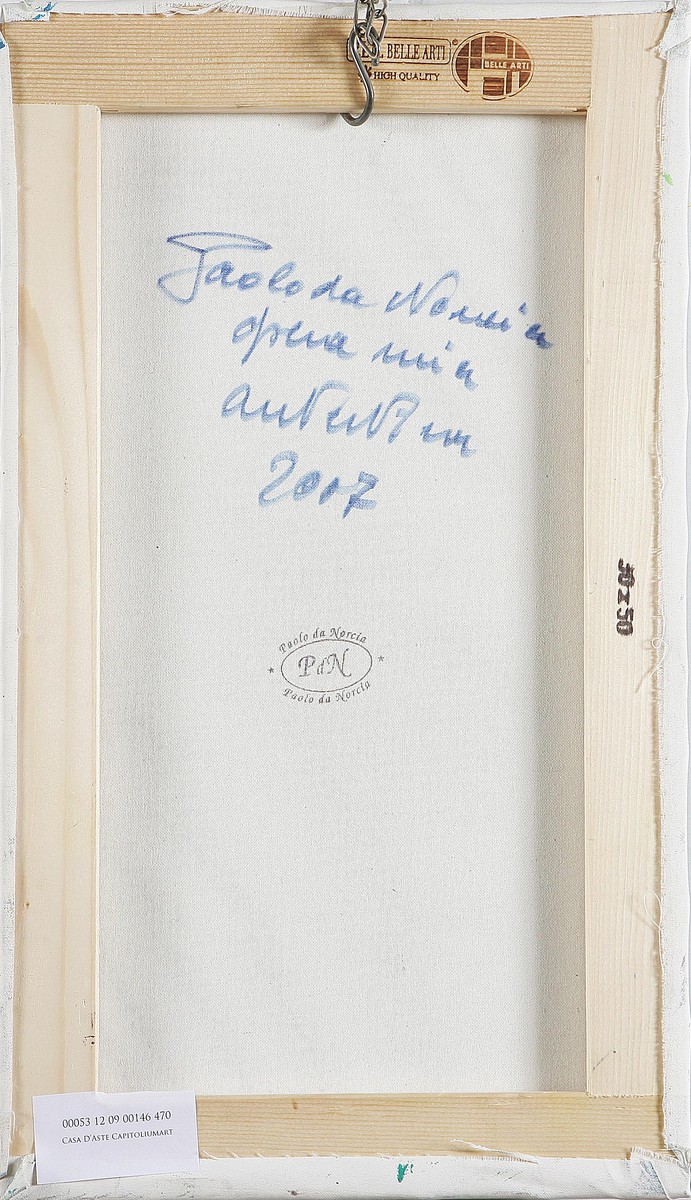 BELLE ARTI
HIGH QUALITY
BELLE ARTI
Paolo da Norcia
opera mia
autentica
2007
30x50
Paolo da Norcia
PdN
Paolo da Norcia
00053 12 09 00146 470
CASA D'ASTE CAPITOLIUMART